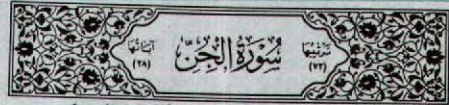 ترتيبها
(٧٢)
سُورَةُ الْجِنِّ
آياتها
(٢٨)